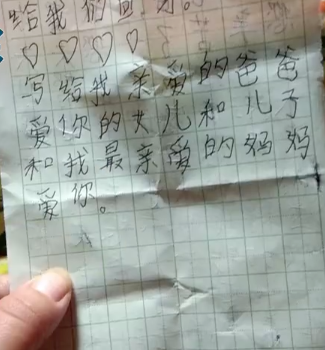 给我们的
♡ ♡ ♡ ♡
写给我亲爱的爸爸
爱你的女儿和儿子
和我最亲爱的妈妈
爱你。